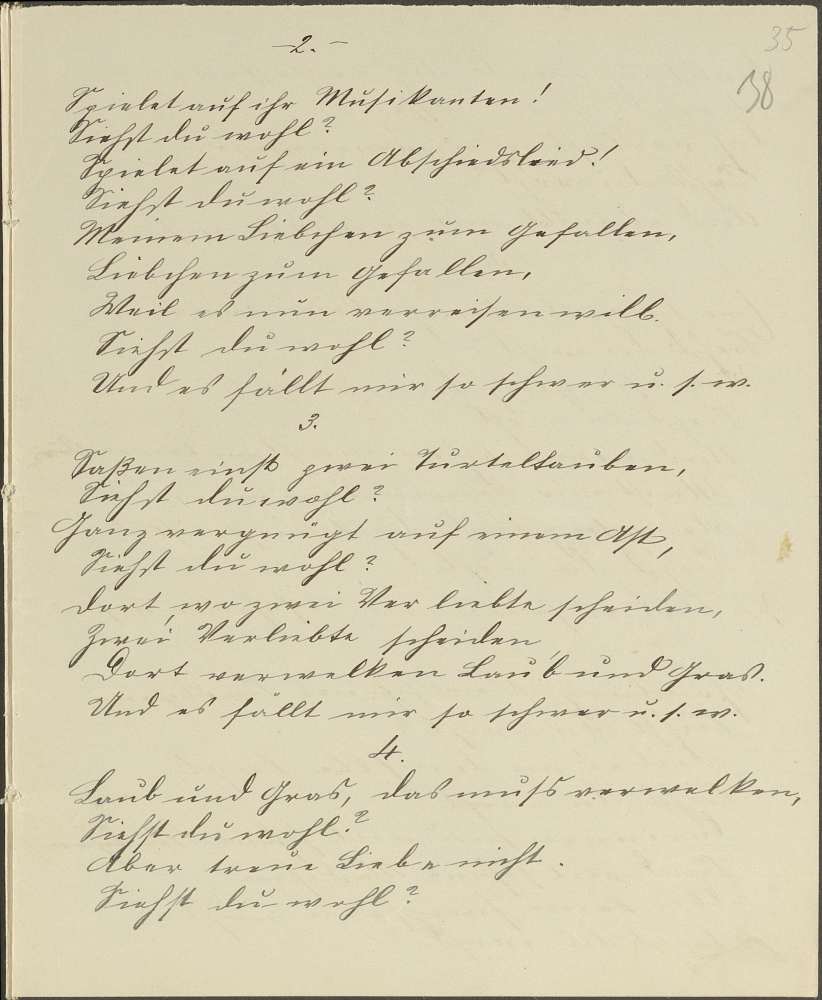 -2.-
35
38
Spielet auf ihr Musikanten!
Siehst du wohl?
Spielet auf ein Abschiedslied!
Siehst du wohl?
Meinem Liebchen zum Gefallen,
Liebchen zum Gefallen,
Weil es nun verreisen will.
Siehst du wohl?
Und es fällt mir so schwer u. s. w.
3.
Saßen einst zwei Turteltauben,
Siehst du wohl?
Ganz vergnügt auf einem Ast,
Siehst du wohl?
Dort, wo zwei Verliebte scheiden,
Zwei Verliebte scheiden
Dort verwelken Laub und Gras.
Und es fällt mir so schwer u. s. w.
4.
Laub und Gras, das muss verwelken,
Siehst du wohl?
Aber treue Liebe nicht.
Siehst du wohl?